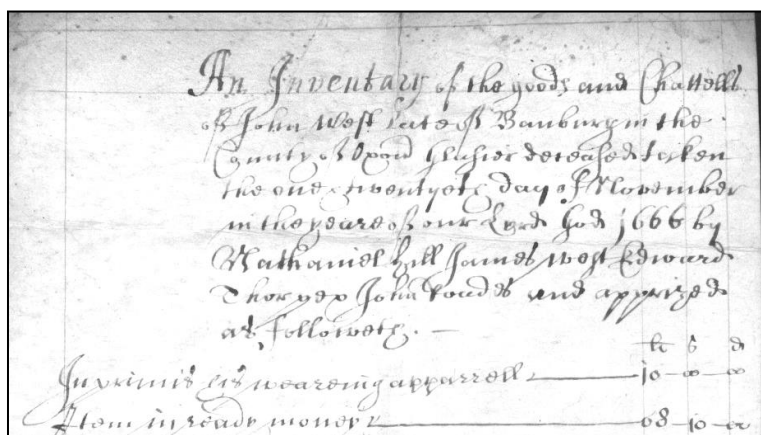 An Inventary of the goods and Chattells
of John West late of Banbury in the
County of Oxon Glasier deceased taken
the one & twentyeth day of November
in the yeare of our Lord God 1666 by
Nathaniel Hill James West Edward
Thorpe John and apprized
as followeth. —
li s d
In primis his weareing apparrell — 10 — 00 — 00
Item in ready money — 08 — 10 — 00